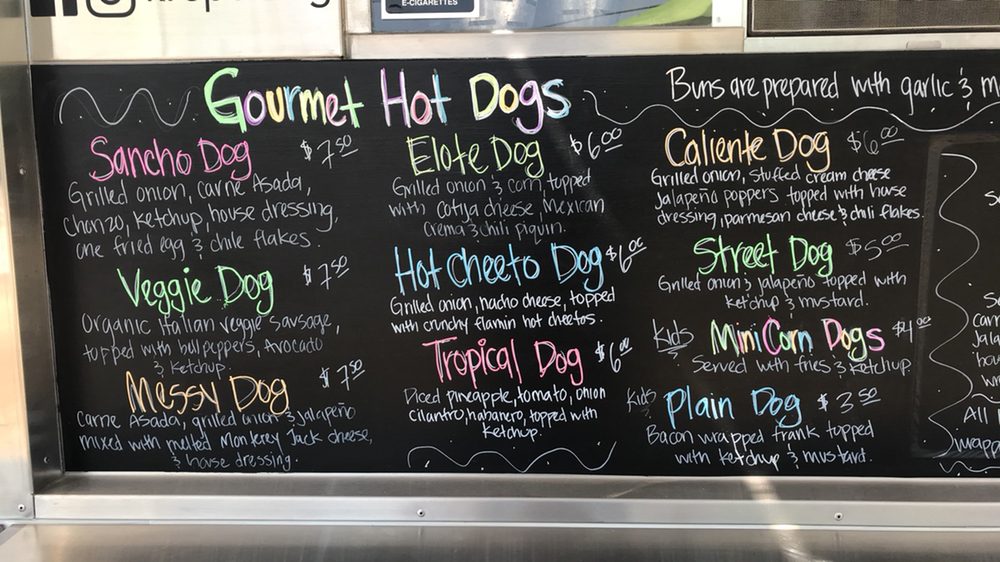 E-CIGARETTES
Gourmet Hot Dogs
Buns are prepared with garlic &
Sancho Dog $7.50
Grilled onion, carne Asada,
Chorizo, Ketchup, house dressing,
one fried egg & chile flakes.
Veggie Dog $7.50
Organic Italian veggie sausage,
topped with bell peppers, Avocado
& Ketchup.
Messy Dog $7.50
Carne Asada, grilled onion & jalapeño
mixed with melted Monterey Jack cheese,
& house dressing.
Elote Dog $6.00
Grilled onion & corn, topped
with cotija cheese, Mexican
Crema & chili piquin.
Hot Cheeto Dog $6.00
Grilled onion, nacho cheese, topped
with crunchy flamin hot cheetos.
Tropical Dog $6.00
Diced pineapple, tomato, onion
cilantro, habanero, topped with
Ketchup.
Caliente Dog $6.00
Grilled onion, stuffed cream cheese
jalapeño poppers topped with house
dressing, parmesan cheese & chili flakes.
Street Dog $5.00
Grilled onion & jalapeño topped with
ketchup & mustard.
Kids Mini Corn Dogs $4.00
Served with fries & Ketchup.
Kids Plain Dog $3.50
Bacon wrapped frank topped
with ketchup & mustard.
All